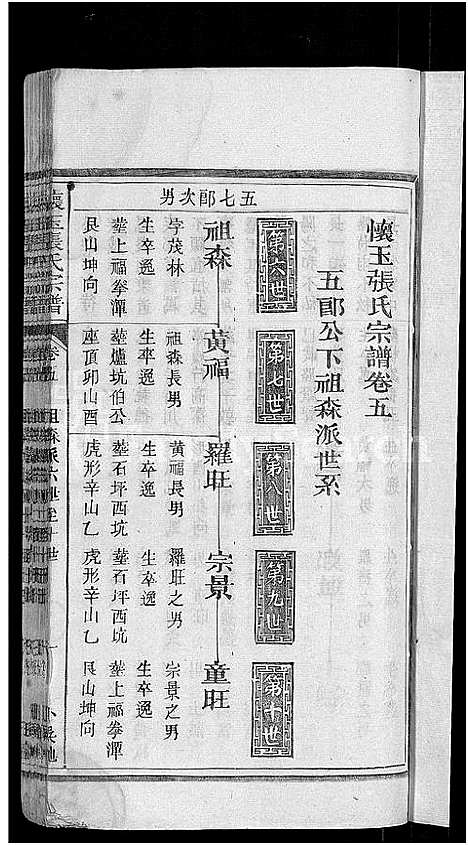 懷玉張氏宗譜卷五
五郎公下祖森派世系
第六世
第七世
第八世
第九世
第十世
五七郎次男
祖森
字茂林
生卒逸
塟上福拳潭
艮山坤向
黃福
祖森長男
生卒逸
塟爐坑伯公
座頂卯山酉
羅旺
黃福長男
生卒逸
塟石坪西坑
虎形辛山乙
宗景
羅旺之男
生卒逸
塟石坪西坑
虎形辛山乙
童旺
宗景之男
生卒逸
塟上福拳潭
艮山坤向
懷玉張氏宗譜
卷五
祖森派六世至十世
一